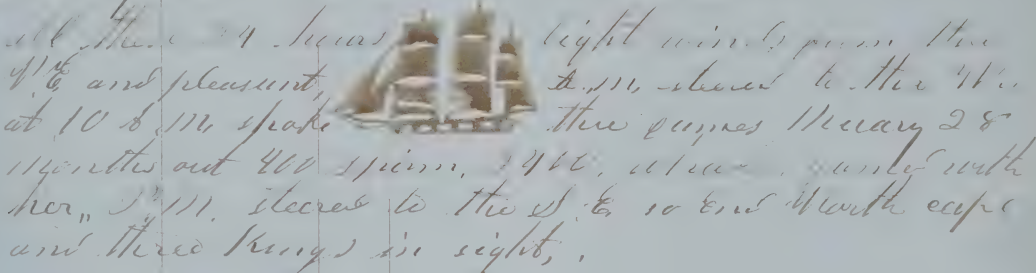 all these 24 hours light winds from the
N.E. and pleasant, A.M. steered to the
at 10 A.M. spoke the James Maury 28
months out 400 sperm, 2400, whale, with
her,, P.M. steered to the S.E. so end North cape
and three Kings in sight, .